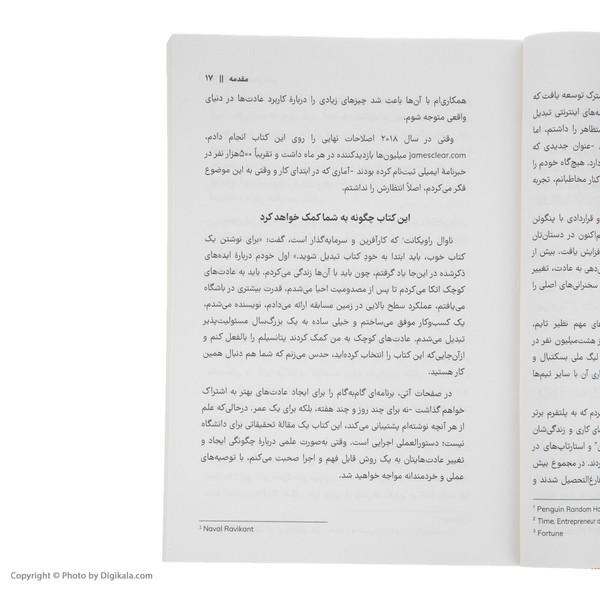 مقدمه || ۱۷
همکاری‌ام با آن‌ها باعث شد چیزهای زیادی را دربارهٔ کاربرد عادت‌ها در دنیای
واقعی متوجه شوم.
وقتی در سال ۲۰۱۸ اصلاحات نهایی را روی این کتاب انجام دادم،
jamesclear.com میلیون‌ها بازدیدکننده در هر ماه داشت و تقریباً ۵۰۰هزار نفر در
خبرنامهٔ ایمیلی ثبت‌نام کرده بودند -آماری که در ابتدای کار و وقتی به این موضوع
فکر می‌کردم، اصلاً انتظارش را نداشتم.
این کتاب چگونه به شما کمک خواهد کرد
ناوال راویکانت¹ که کارآفرین و سرمایه‌گذار است، گفت: «برای نوشتن یک
کتاب خوب، باید ابتدا به خودِ کتاب تبدیل شوید.» اول خودم دربارهٔ ایده‌های
ذکرشده در این‌جا یاد گرفتم، چون باید با آن‌ها زندگی می‌کردم. باید به عادت‌های
کوچک اتکا می‌کردم تا پس از مصدومیت احیا می‌شدم، قدرت بیشتری در باشگاه
می‌یافتم، عملکرد سطح بالایی در زمین مسابقه ارائه می‌دادم، نویسنده می‌شدم،
یک کسب‌وکار موفق می‌ساختم و خیلی ساده به یک بزرگ‌سال مسئولیت‌پذیر
تبدیل می‌شدم. عادت‌های کوچک به من کمک کردند پتانسیلم را بالفعل کنم و
ازآن‌جایی‌که این کتاب را انتخاب کرده‌اید، حدس می‌زنم که شما هم دنبال همین
کار هستید.
در صفحات آتی، برنامه‌ای گام‌به‌گام را برای ایجاد عادت‌های بهتر به اشتراک
خواهم گذاشت -نه برای چند روز و چند هفته، بلکه برای یک عمر. درحالی‌که علم
از هر آنچه نوشته‌ام پشتیبانی می‌کند، این کتاب یک مقالهٔ تحقیقاتی برای دانشگاه
نیست؛ دستورالعملی اجرایی است. وقتی به‌صورت علمی دربارهٔ چگونگی ایجاد و
تغییر عادت‌هایتان به یک روش قابل فهم و اجرا صحبت می‌کنم، با توصیه‌های
عملی و خردمندانه مواجه خواهید شد.
¹ Naval Ravikant
ترک توسعه یافت که
های اینترنتی تبدیل
تظاهر را داشتم، اما
-عنوان جدیدی که
دارد. هیچ‌گاه خودم را
کنار مخاطبانم، تجربه
و قراردادی با پنگوئن
م‌اکنون در دستان‌تان
فزایش یافت. بیش از
دهی به عادت، تغییر
سخنرانی‌های اصلی را
های مهم نظیر تایم،
از هشت‌میلیون نفر در
لیگ ملی بسکتبال و
ری آن با سایر تیم‌ها
ردم که به پلتفرم برتر
های کاری و زندگی‌شان
و استارتاپ‌های در
دند. در مجموع بیش
فارغ‌التحصیل شدند و
¹ Penguin Random Ho
² Time, Entrepreneur
³ Fortune
Copyright © Photo by Digikala.com